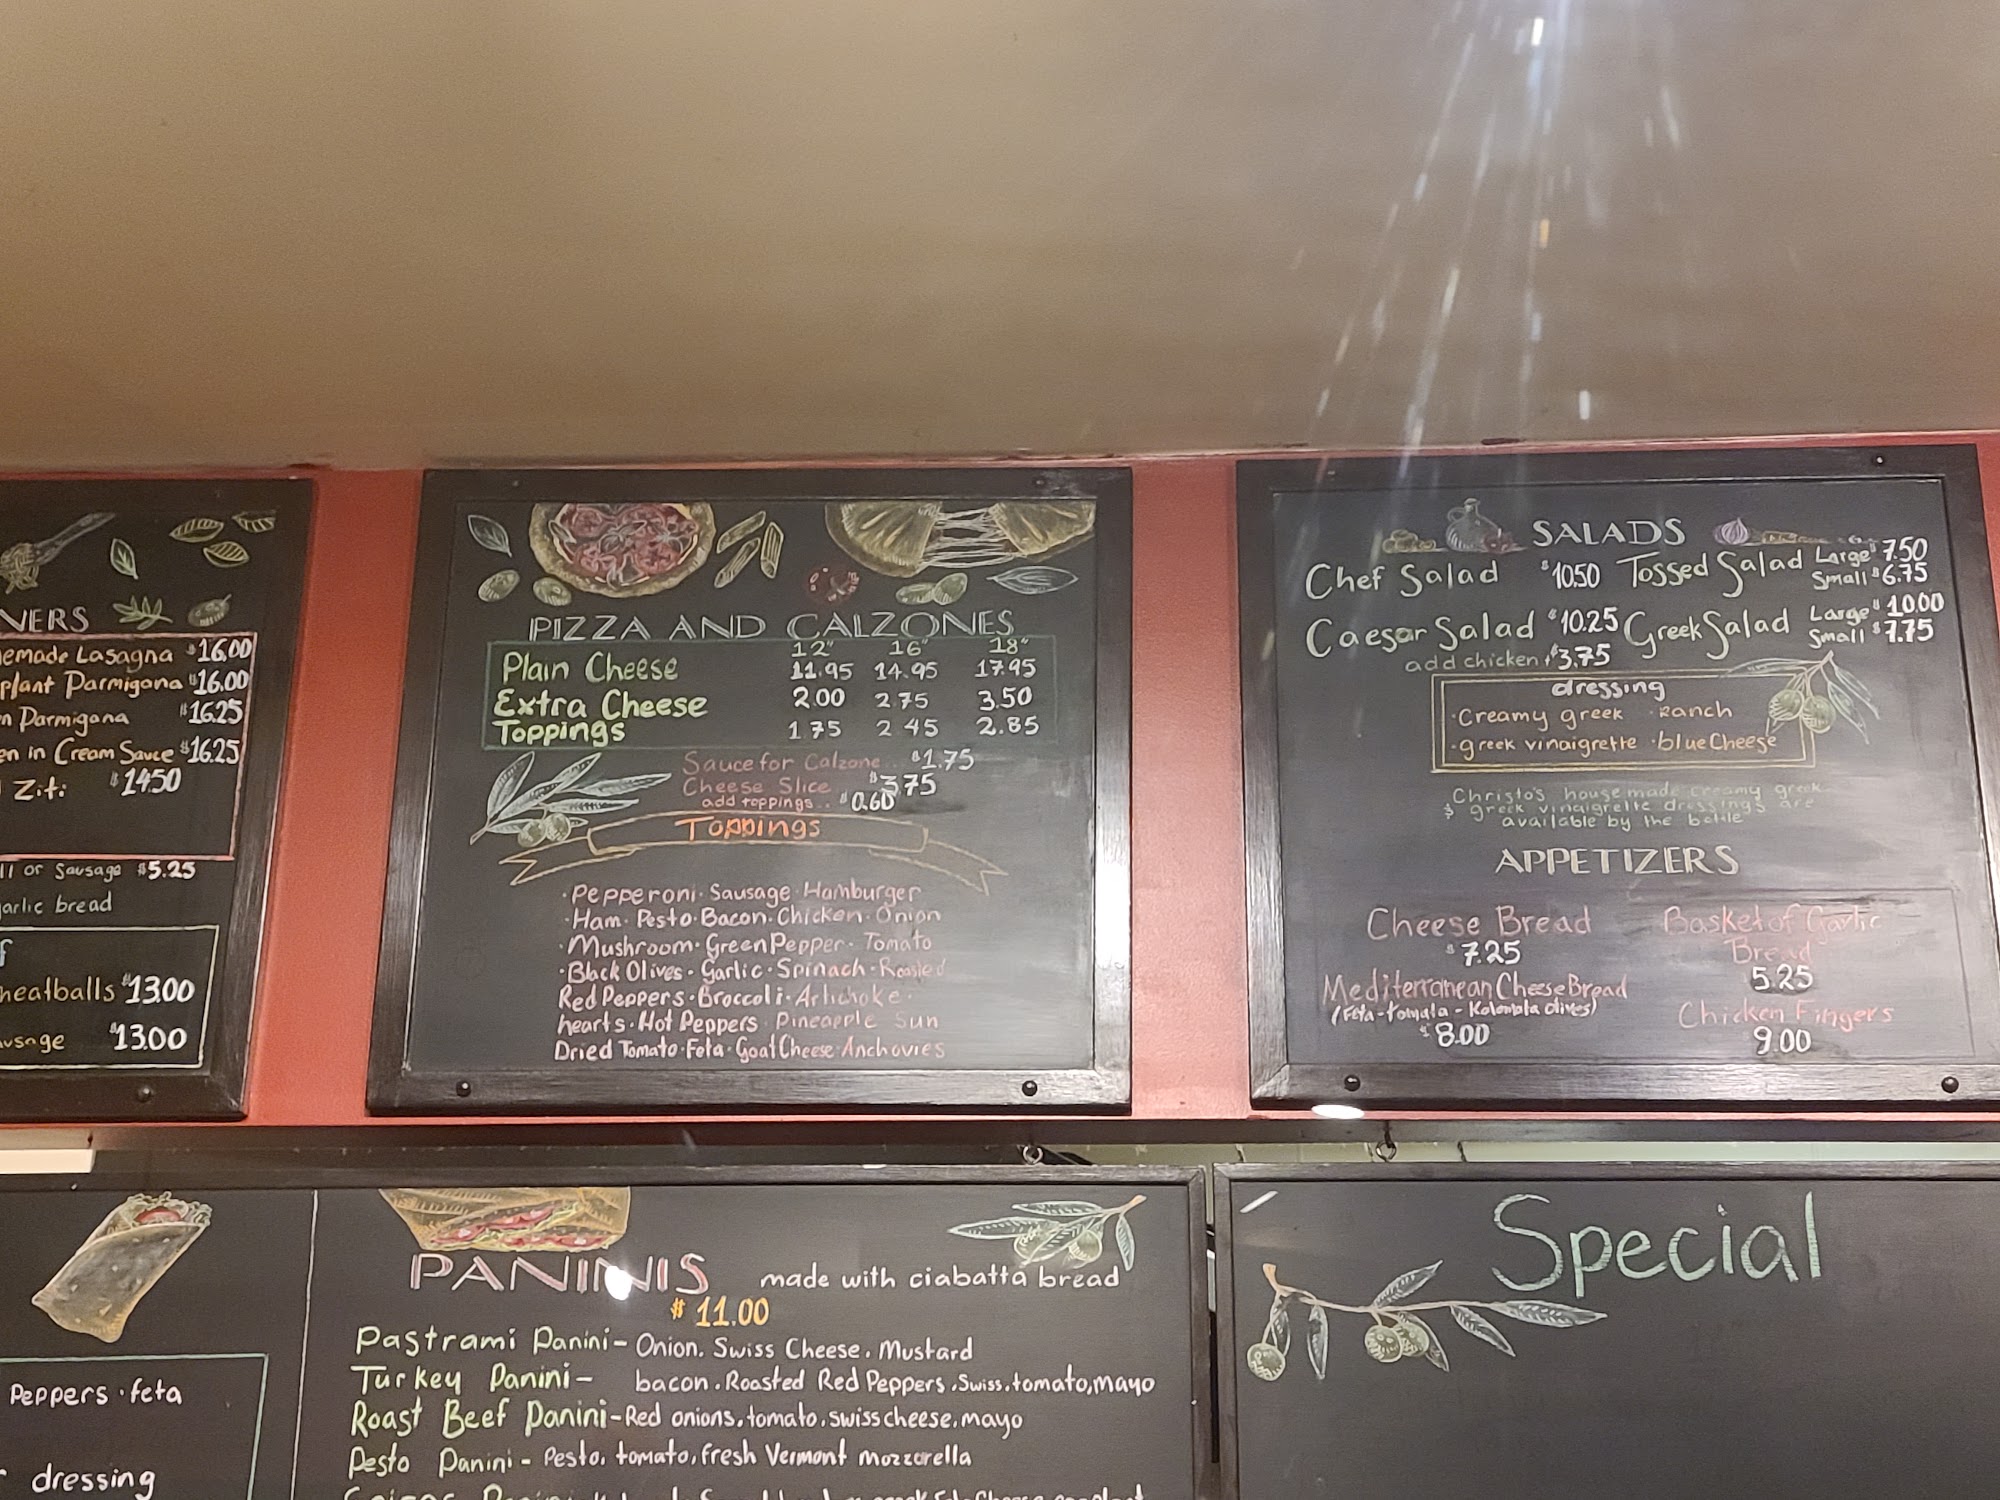 VERS
emade Lasagna $16.00
plant Parmigana $16.00
n Parmigana $16.25
en in Cream Sauce $16.25
Ziti $14.50
ll or Sausage $5.25
garlic bread
f
meatballs $13.00
usage $13.00
PIZZA AND CALZONES
12" 16" 18"
Plain Cheese 11.95 14.95 17.95
Extra Cheese 2.00 2 75 3.50
Toppings 1 75 2 45 2.85
Sauce for Calzone... $1.75
Cheese Slice $3.75
add toppings... $0.60
Toppings
·Pepperoni·Sausage·Hamburger
·Ham·Pesto·Bacon·Chicken·Onion
·Mushroom·Green Pepper·Tomato
·Black Olives·Garlic·Spinach·Roasted
Red Peppers·Broccoli·Artichoke·
hearts·Hot Peppers·Pineapple Sun
Dried Tomato·Feta·Goat Cheese·Anchovies
SALADS
Chef Salad $10.50 Tossed Salad Large $7.50
Small $6.75
Caesar Salad $10.25 Greek Salad Large $10.00
Small $7.75
add chicken + $3.75
dressing
·Creamy greek ·Ranch
·greek vinaigrette ·blue Cheese
Christo's housemade creamy greek
& greek vinaigrette dressings are
available by the bottle
APPETIZERS
Cheese Bread Basket of Garlic
$7.25 Bread
5.25
Mediterranean Cheese Bread
(Feta-tomato-Kalamata Olives) Chicken Fingers
$8.00 9.00
PANINIS made with ciabatta bread
$11.00
Pastrami Panini- Onion. Swiss Cheese. Mustard
Turkey Panini- bacon.Roasted Red Peppers.Swiss.tomato,mayo
Roast Beef Panini-Red onions.tomato.swiss cheese.mayo
Pesto Panini- Pesto, tomato, fresh Vermont mozzarella
Peppers·feta
dressing
Special